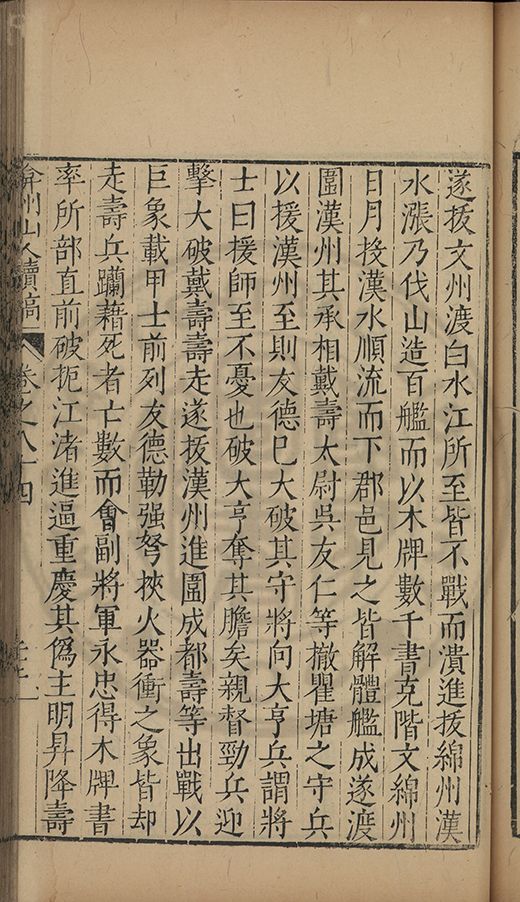 遂拔文州渡白水江所至皆不戰而潰進拔綿州漢
水漲乃伐山造百艦而以木牌數千書克階文綿州
日月投漢水順流而下郡邑見之皆解體艦成遂渡
圍漢州其丞相戴壽太尉吳友仁等撤瞿塘之守兵
以援漢州至則友德已大破其守將向大亨兵謂將
士曰援師至不憂也破大亨奪其膽矣親督勁兵迎
擊大破戴壽壽走遂拔漢州進圍成都壽等出戰以
巨象載甲士前列友德勒强弩挾火器衝之象皆却
走壽兵躪藉死者亡數而會副將軍永忠得木牌書
率所部直前破扼江渚進逼重慶其僞主明昇降壽
弇州山人續稿 卷之八十四